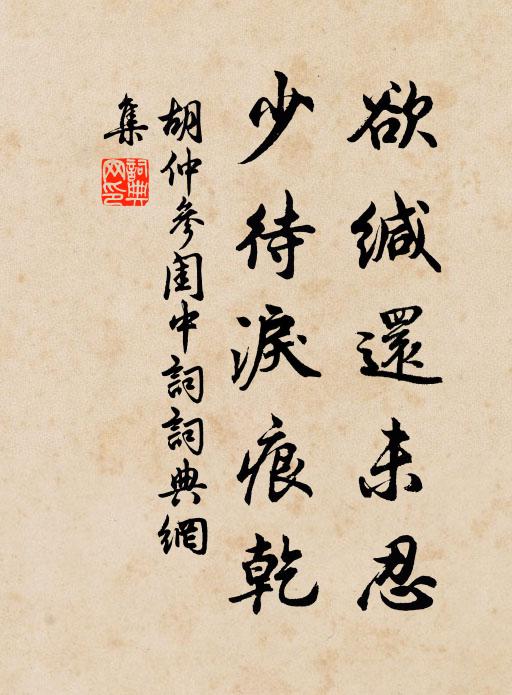 欲緘還未忍
少待淚痕乾
胡仲參閨中詞詞典網
集
詞典
网印